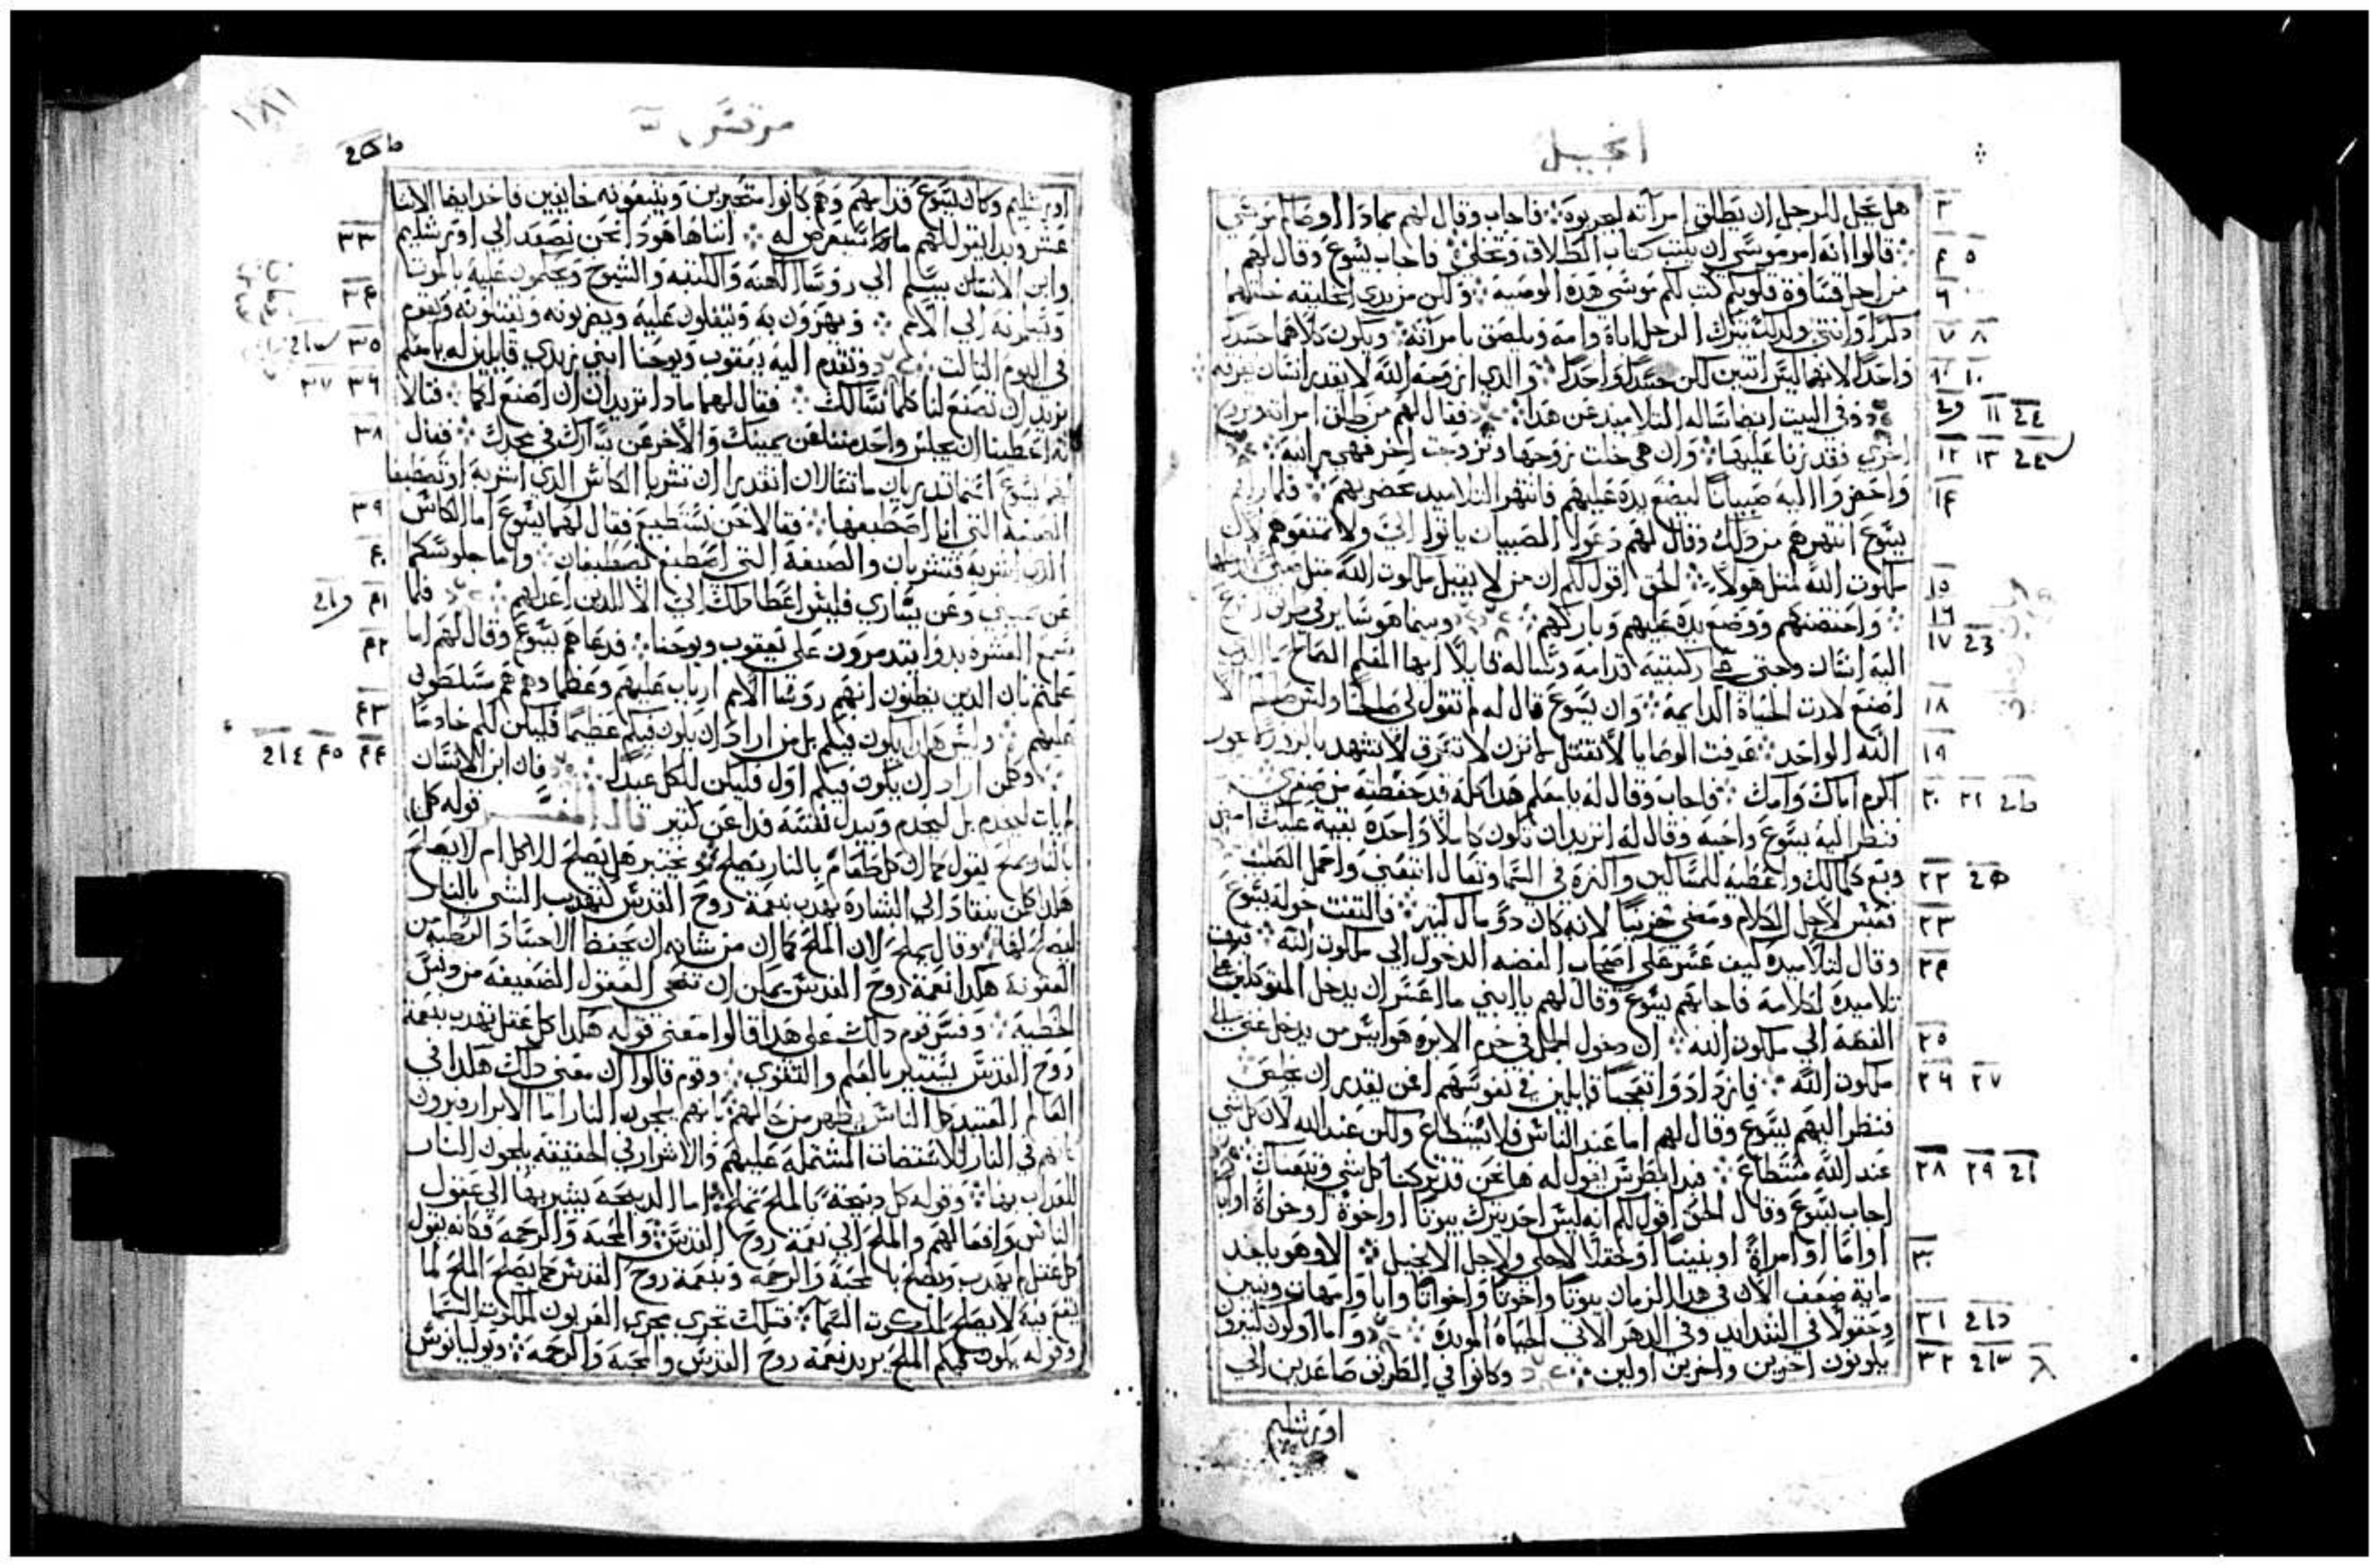 انجيل
هل يحل للرجل ان يطلق امرأته ليجربوه فاجاب وقال لهم بماذا اوصاكم موسي
قالوا انه امر موسي ان يكتب كتاب الطلاق وتخلي فاجاب يسوع وقال لهم
من اجل قساوة قلوبكم كتب لكم موسي هذه الوصيه ولكن من بدي الخليقه خلقهما
ذكرًا وانثي ولذلك يترك الرجل اباه وامه ويلصق بامرأته ويكون كلاهما جسدًا
واحدًا لانهما ليس اثنين لكن جسدًا واحدًا والذي ازوجه الله لا يقدر انسان يفرقه
وفي البيت ايضا ساله التلاميذ عن هذا فقال لهم من طلق امراته وتزوج
اخري فقد زنا عليها وان هي خلت زوجها وتزوجت اخر فهي زانيه
واحضروا اليه صبيانًا ليضع يده عليهم فانتهر التلاميذ محضريهم فلما راهم
يسوع انتهرهم من ذلك وقال لهم دعوا الصبيان ياتوا الي ولا تمنعوهم لان
ملكوت الله لمثل هولاء الحق اقول لكم ان من لا يقبل ملكوت الله مثل صبي
واحتضنهم ووضع يده عليهم وباركهم وبينما هو ساير في طريق
اليه انسان وجثي علي ركبتيه قدامه وساله قايلًا ايها المعلم الصالح
اصنع لارث الحياة الدايمة وان يسوع قال له لم تقول لي صالحًا وليس صالح الا
الله الواحد عرفت الوصايا لا تقتل لا تزن لا تسرق لا تشهد بالزور
اكرم اباك وامك فاجاب وقال له يا معلم هذا كله قد حفظته من صغري
فنظر اليه يسوع واحبه وقال له اتريد ان تكون كاملًا واحدة بقية عليك امض
وبع كلمالك واعطيه للمساكين والنزه في السما وتعال اتبعني واحمل الصلب
فعبس لاجل الكلام ومضي حزينًا لانه كان ذو مال كثير فالتفت حوله يسوع
وقال لتلاميذه كيف عسر علي اصحاب الفضه الدخول الي ملكوت الله
تلاميذه لكلامه فاجابهم يسوع وقال لهم يا ابني ما اعسر ان يدخل المتوكلين علي
الفضه الي ملكوت الله ان دخول الجمل في خرم الابره هو ايسر من يدخل غني الي
ملكوت الله فازدادوا تعجبًا قايلين في نفوسهم من يقدر ان يخلص
فنظر اليهم يسوع وقال لهم اما عند الناس فلا يستطاع ولكن عند الله لان كل شي
عند الله مستطاع فبدا بطرس يقول له ها نحن قد تركنا كل شي وتبعناك
اجاب يسوع وقال الحق اقول لكم انه ليس احد يترك بيوتًا او اخوة او اخواة او ابا
او امًا او امراةً او بنينًا او حقلًا لاجلي ولاجل الانجيل الا وهو ياخذ
ماية ضعف الان في هذا الزمان بيوتًا واخوتًا واخواتًا وابا وامهات وبنين
وحقولًا في الشدايد وفي الدهر الاتي الحياة الموبدة واما اولون كثيرون
يكونون اخرين واخرين اولين وكانوا في الطريق صاعدين الي
اورشليم
مرقس
١٨١
اورشليم وكان يسوع قدامهم وهم كانوا متحيرين ويتبعونه خايفين فاخذ ايضا الاثنا
عشر وبدا يقول لهم ما سيعرض له اننا ها هوذا نحن نصعد الي اورشليم
وابن الانسان يسلم الي روسا الكهنه والكتبه والشيوخ ويحكمون عليه بالموت
ويسلمونه الي الامم ويهزون به ويتفلون عليه ويضربونه ويقتلونه ويقوم
في اليوم الثالث وتقدم اليه يعقوب ويوحنا ابني زبدي قايلين له يا معلم
نريد ان تصنع لنا كلما نسالك فقال لهما ماذا تريدان ان اصنع لكما فقالا
له اعطينا ان يجلس واحد منا عن يمينك والاخر عن يسارك في مجدك فقال
لهم يسوع انتما تدريان ما تسالان اتقدرا ان تشربا الكاس الذي اشربه او تصطبغا
الصبغه التي انا اصطبغها فقالا نحن نستطيع فقال لهما يسوع اما الكاس
الذي اشربه فتشربان والصبغة التي اصطبغ تصطبغان واما جلوسكما
عن يميني وعن يساري فليس اعطا ذلك الي الا للذين اعد لهم فلما
سمع العشرة بدوا يتذمرون علي يعقوب ويوحنا فدعاهم يسوع وقال لهم اما
علمتم بان الذين يظنون انهم روسا الامم ارباب عليهم وعظماوهم هم متسلطون
عليهم وليس هكذا يكون فيكم بل من اراد ان يكون فيكم عظيمًا فليكن لكم خادمًا
ومن اراد ان يكون فيكم اول فليكن للكل عبدًا فان ابن الانسان
لم يات ليخدم بل ليخدم ويبذل نفسه فدا عن كثير قال المفسر قوله كل
بالنار يملح يقول كما ان كل طعام بالنار يصلح ثم يختبر هل يصلح للاكل ام لا يصلح
هكذا كلمن ينقاد الي البشارة يهذب بنعمة روح القدس كتهذيب الشي بالنار
وقال يملح لان الملح كما ان من شانه ان يحفظ الاجساد الرطبه من
العفونة هكذا نعمة روح القدس يمكن ان تنقي العقول الضعيفه من دنس
الخطية وفسر قوم ذلك علي هذا قالوا معني قوله هكذا كل عقل يهذب بنعمة
روح القدس يستنير بالعلم والتقوي وقوم قالوا ان معني ذلك هكذا في
العالم العتيد كل الناس يظهر من حالهم بانهم يلجون النار اما الابرار فيرون
انهم في النار للاستضات المشتملة عليهم والاشرار في الحقيقه يلجون النار
للعذاب بها وقوله كل ذبيحة بالملح تملح اما الذبيحه يشير بها الي عقول
الناس وافعالهم والملح الي نعمة روح القدس والمحبة والرحمه فكانه يقول
كل عقل لم يهذب ويصلح با لمحبة والرحمه وبنعمة روح القدس كما يصلح الملح لما
يقع فيه لا يصلح لملكوت السما فتلك تجري مجري العربون لملكوت السما
وقوله يكون فيكم الملح يريد نعمة روح القدس والمحبة والرحمه ويوليانوس